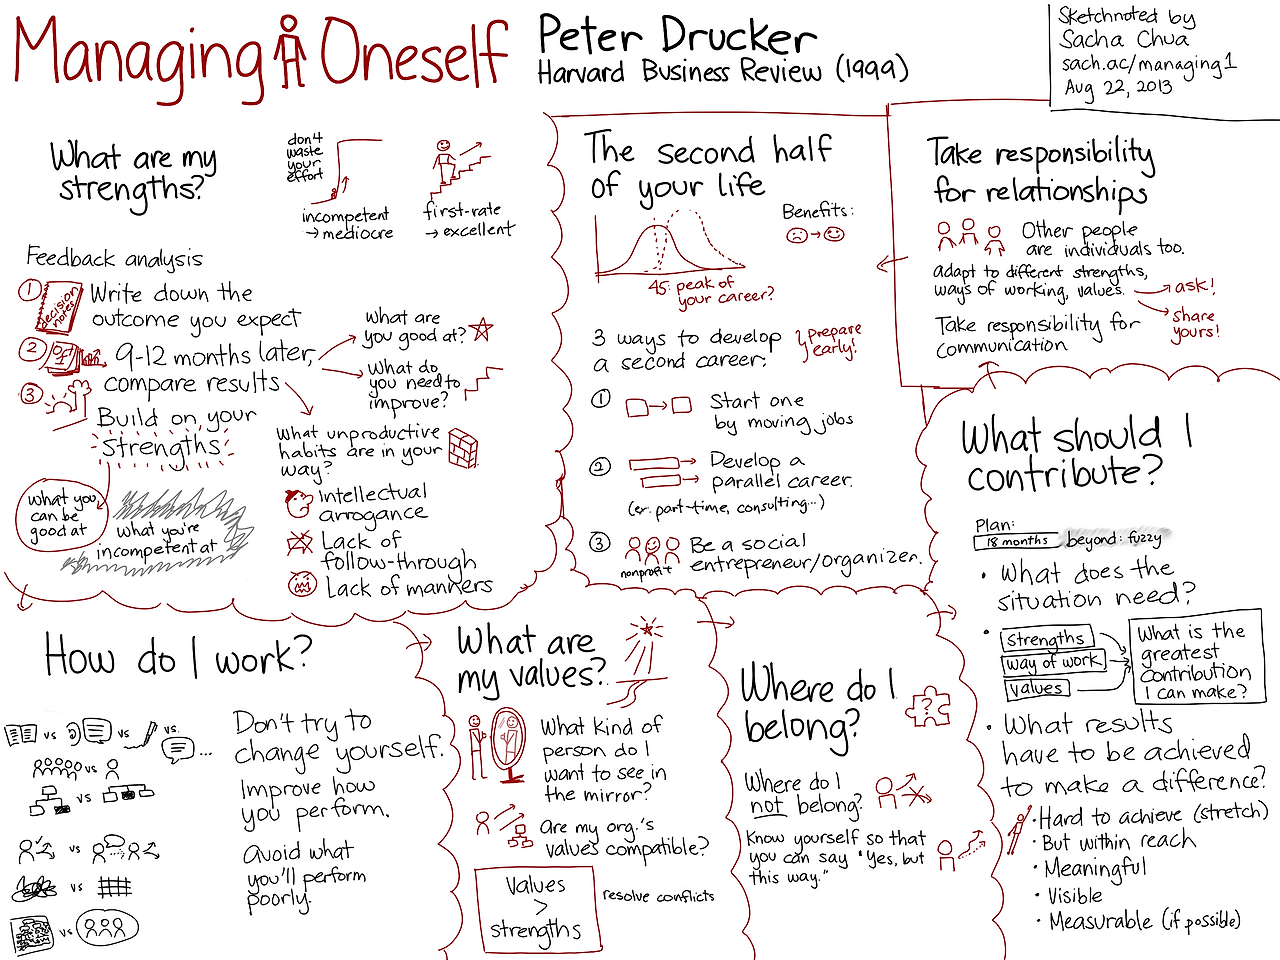 Managing Oneself
Peter Drucker
Harvard Business Review (1999)
Sketchnoted by
Sacha Chua
sach.ac/managing1
Aug 22, 2013
What are my
strengths?
don't
waste
your
effort
incompetent
→ mediocre
first-rate
→ excellent
Feedback analysis
1
decision
notes
Write down the
outcome you expect
2
9-12 months later,
compare results
What are
you good at?
What do
you need to
improve?
3
Build on your
strengths
What you
can be
good at
What you're
incompetent at
What unproductive
habits are in your
way?
Intellectual
arrogance
Lack of
follow-through
Lack of manners
How do I work?
vs
vs
vs
...
vs
vs
vs
vs
vs
Don't try to
change yourself.
Improve how
you perform.
Avoid what
you'll perform
poorly.
What are
my values?
What kind of
person do I
want to see in
the mirror?
Are my org.'s
values compatible?
Values
>
strengths
resolve conflicts
Where do I
belong?
?
Where do I
not belong?
Know yourself so that
you can say "Yes, but
this way."
What should I
contribute?
Plan:
18 months
beyond: fuzzy
• What does the
situation need?
• strengths
way of work
values
What is the
greatest
contribution
I can make?
• What results
have to be achieved
to make a difference?
• Hard to achieve (stretch)
• But within reach
• Meaningful
• Visible
• Measurable (if possible)
Take responsibility
for relationships
Other people
are individuals too.
adapt to different strengths,
ways of working, values.
→ ask!
→ share
yours!
Take responsibility for
communication
The second half
of your life
45: peak of
your career?
Benefits:
3 ways to develop
a second career:
prepare
early!
1
Start one
by moving jobs
2
Develop a
parallel career.
(ex: part-time, consulting...)
3
nonprofit
Be a social
entrepreneur/organizer.